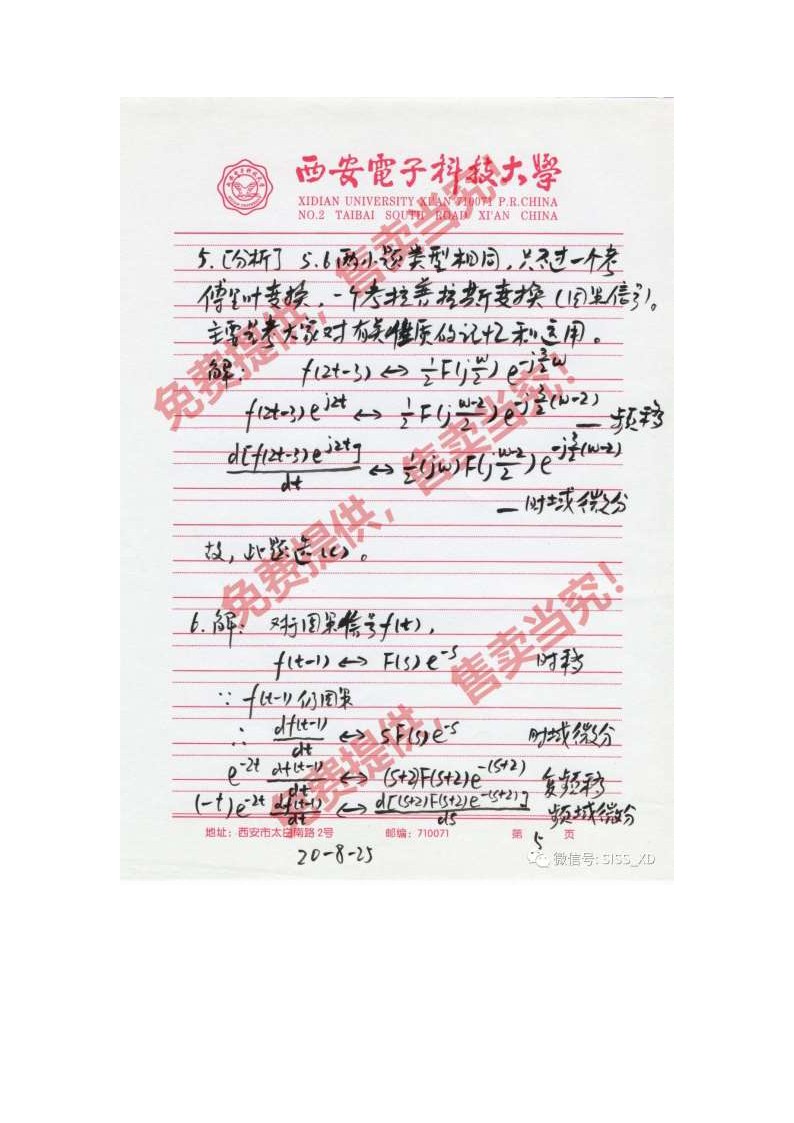 西安電子科技大學
XIDIAN UNIVERSITY XI'AN 710071 P.R.CHINA
NO.2 TAIBAI SOUTH ROAD XI'AN CHINA
5.[分析] 5.6两小题类型相同，只不过一个考
傅里叶变换，一个考拉普拉斯变换（因果信号）。
主要是考大家对有关性质的记忆和运用。
解： f(2t-3) ↔ 1/2 F(j w/2) e^{-j 3/2 w}
f(2t-3)e^{j2t} ↔ 1/2 F(j (w-2)/2) e^{-j 3/2 (w-2)} — 频移
d[f(2t-3)e^{j2t}]/dt ↔ 1/2 (jw) F(j (w-2)/2) e^{-j 3/2 (w-2)}
— 时域微分
故，此题选(C)。
6.解： 对于因果信号f(t)，
f(t-1) ↔ F(s)e^{-s} 时移
∵ f(t-1)仍因果
∴ df(t-1)/dt ↔ sF(s)e^{-s} 时域微分
e^{-2t} df(t-1)/dt ↔ (s+2)F(s+2)e^{-(s+2)} 复频移
(-t)e^{-2t} df(t-1)/dt ↔ d[(s+2)F(s+2)e^{-(s+2)}]/ds 频域微分
地址：西安市太白南路2号 邮编：710071 第 5 页
20-8-25
微信号: SISS_XD
免费提供，售卖当究！
免费提供，售卖当究！
免费提供，售卖当究！